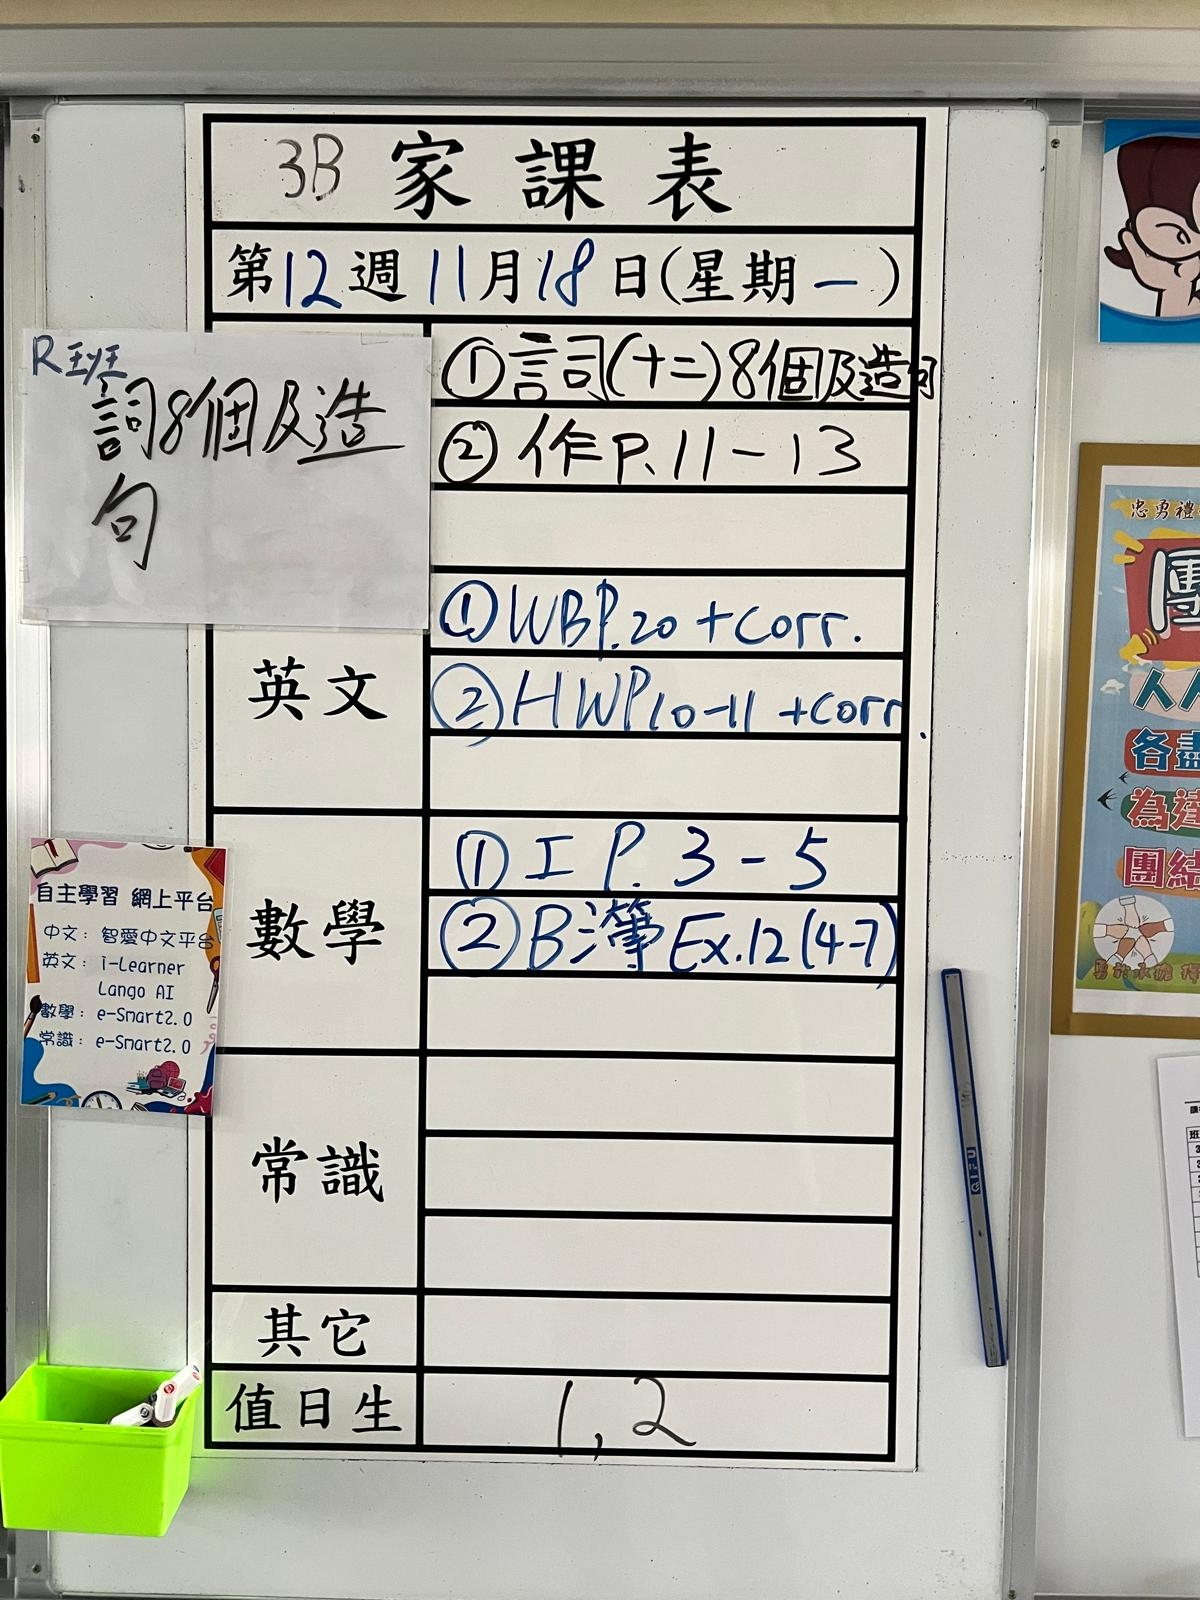 3B 家課表
第12週11月18日(星期一)
R班
詞8個及造
句
①詞(十二)8個及造句
②作P.11-13
英文
①WBP.20+corr.
②HWP10-11+corr.
數學
①I P.3-5
②B簿Ex.12(4-7)
常識
其它
值日生
1,2
自主學習 網上平台
中文：智愛中文平台
英文：i-Learner
Lango AI
數學：e-Smart2.0
常識：e-Smart2.0
忠勇禮
團
人人
各盡
為達
團結
班
3
3